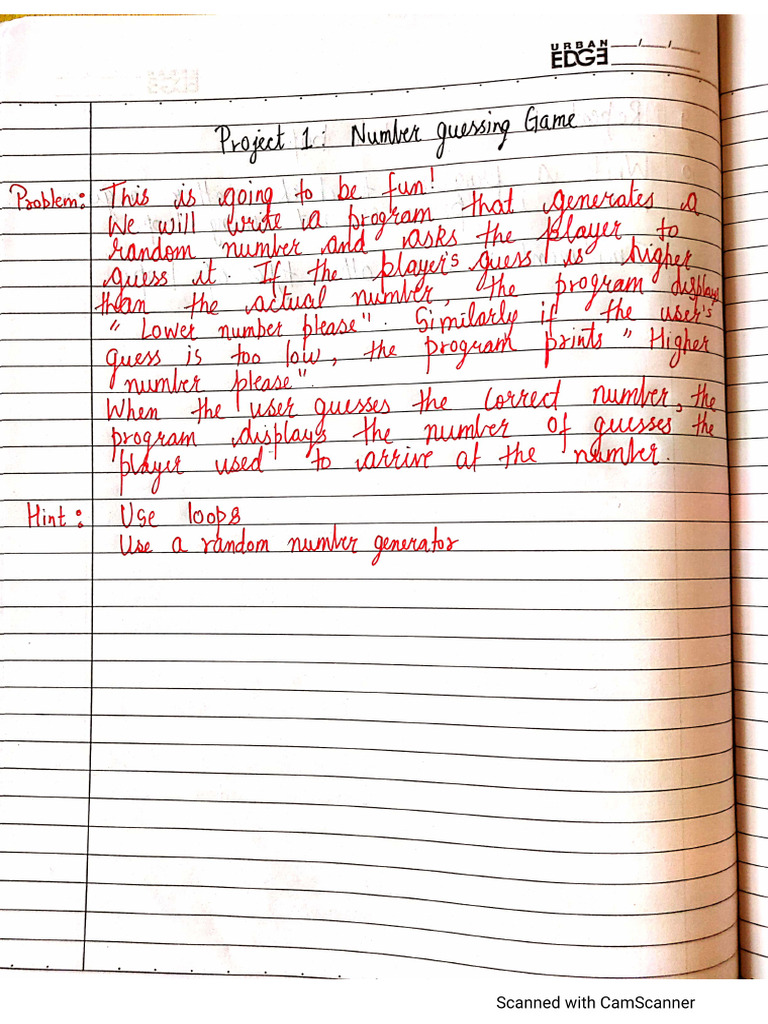 URBAN
EDGE
Project 1: Number guessing Game
Problem: This is going to be fun!
We will write a program that generates a
random number and asks the player to
guess it. If the player's guess is higher
than the actual number, the program displays
"Lower number please". Similarly if the user's
guess is too low, the program prints "Higher
number please".
When the user guesses the correct number, the
program displays the number of guesses the
player used to arrive at the number.
Hint: Use loops
Use a random number generator
Scanned with CamScanner